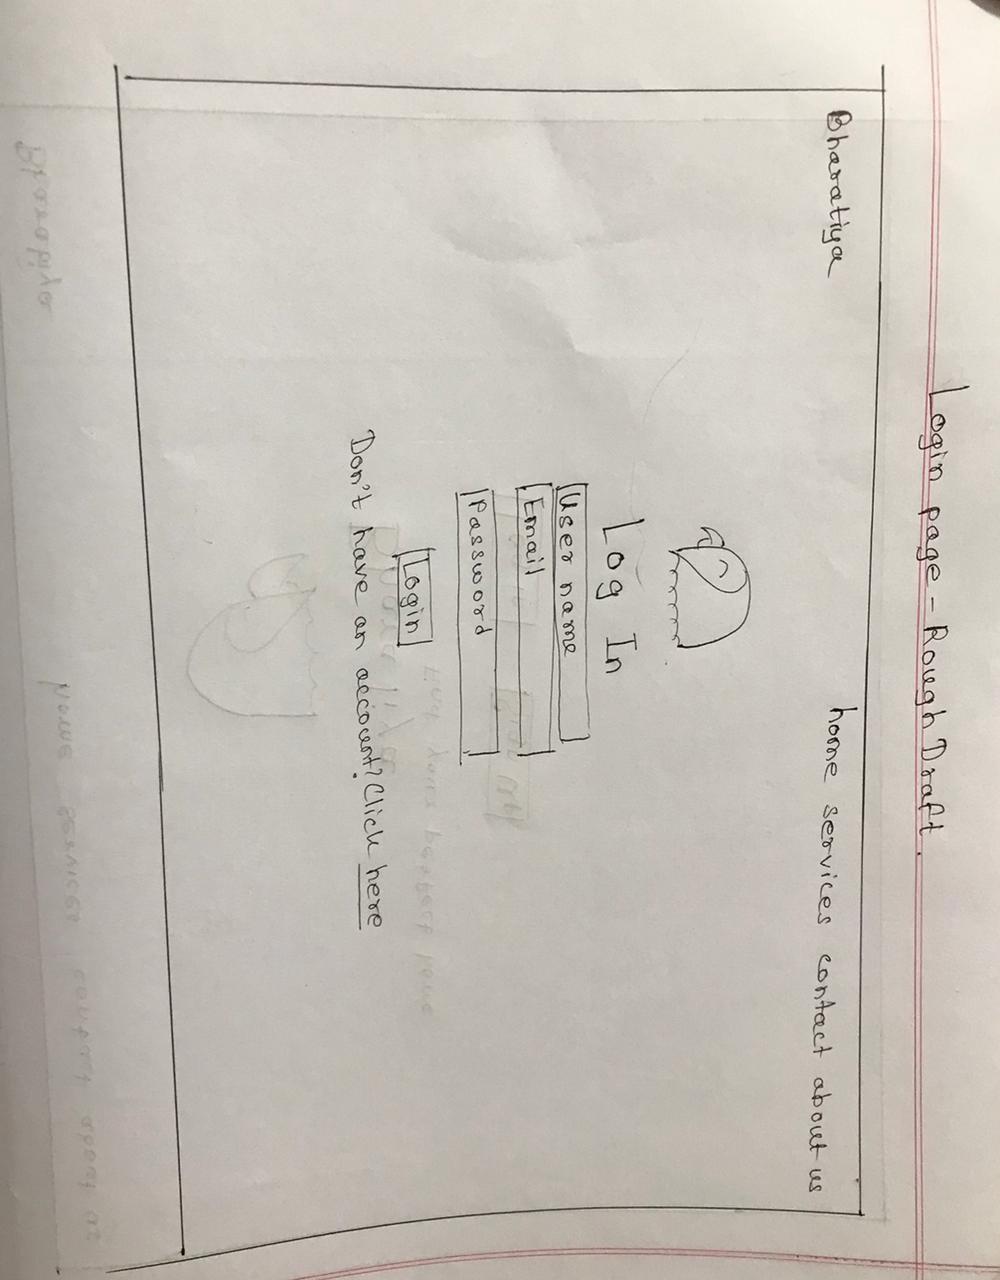 Login page - Rough Draft.
Bharatiya home services contact about us
Log In
User name
Email
Password
Login
Don't have an account? Click here